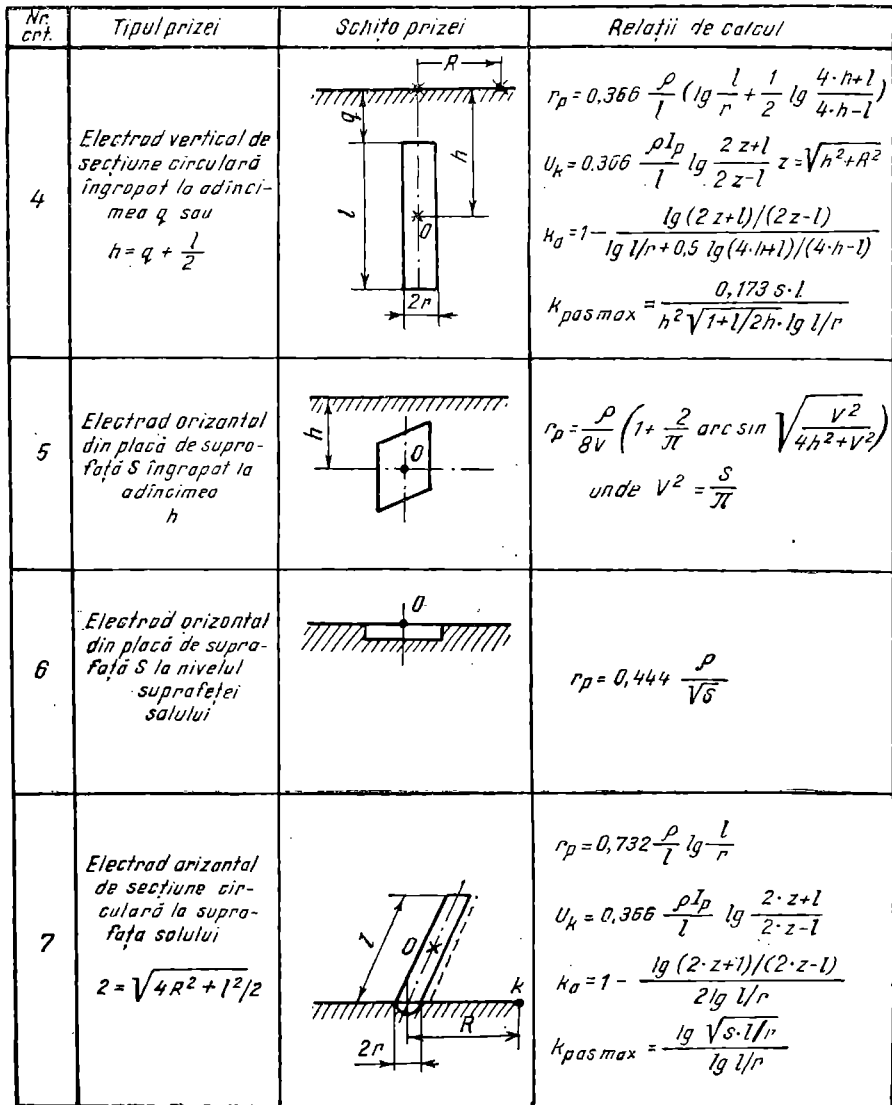 Nr. crt.
Tipul prizei
Schița prizei
Relații de calcul
4
Electrod vertical de
secțiune circulară
îngropat la adînci-
mea q sau
h = q + l/2
R
q
h
l
O
2r
r_p = 0,366 ρ/l (lg l/r + 1/2 lg (4·h+l)/(4·h-l))
U_k = 0.366 ρI_p/l lg (2z+l)/(2z-l) z = √(h²+R²)
k_a = 1 - (lg (2z+l)/(2z-l))/(lg l/r + 0,5 lg (4·h+l)/(4·h-l))
k_pas max = (0,173 s·l)/(h² √(1+l/2h)·lg l/r)
5
Electrod orizontal
din placă de supra-
față S îngropat la
adîncimea
h
h
O
r_p = ρ/8v (1 + 2/π arc sin √(V²/(4h²+V²)))
unde V² = S/π
6
Electrod orizontal
din placă de supra-
față S la nivelul
suprafeței
solului
O
r_p = 0,444 ρ/√s
7
Electrod orizontal
de secțiune cir-
culară la supra-
fața solului
2 = √(4R² + l²)/2
l
O
k
R
2r
r_p = 0,732 ρ/l lg l/r
U_k = 0,366 ρI_p/l lg (2·z+l)/(2·z-l)
k_a = 1 - (lg (2·z+1)/(2·z-l))/(2lg l/r)
k_pas max = (lg √(s·l/r))/(lg l/r)